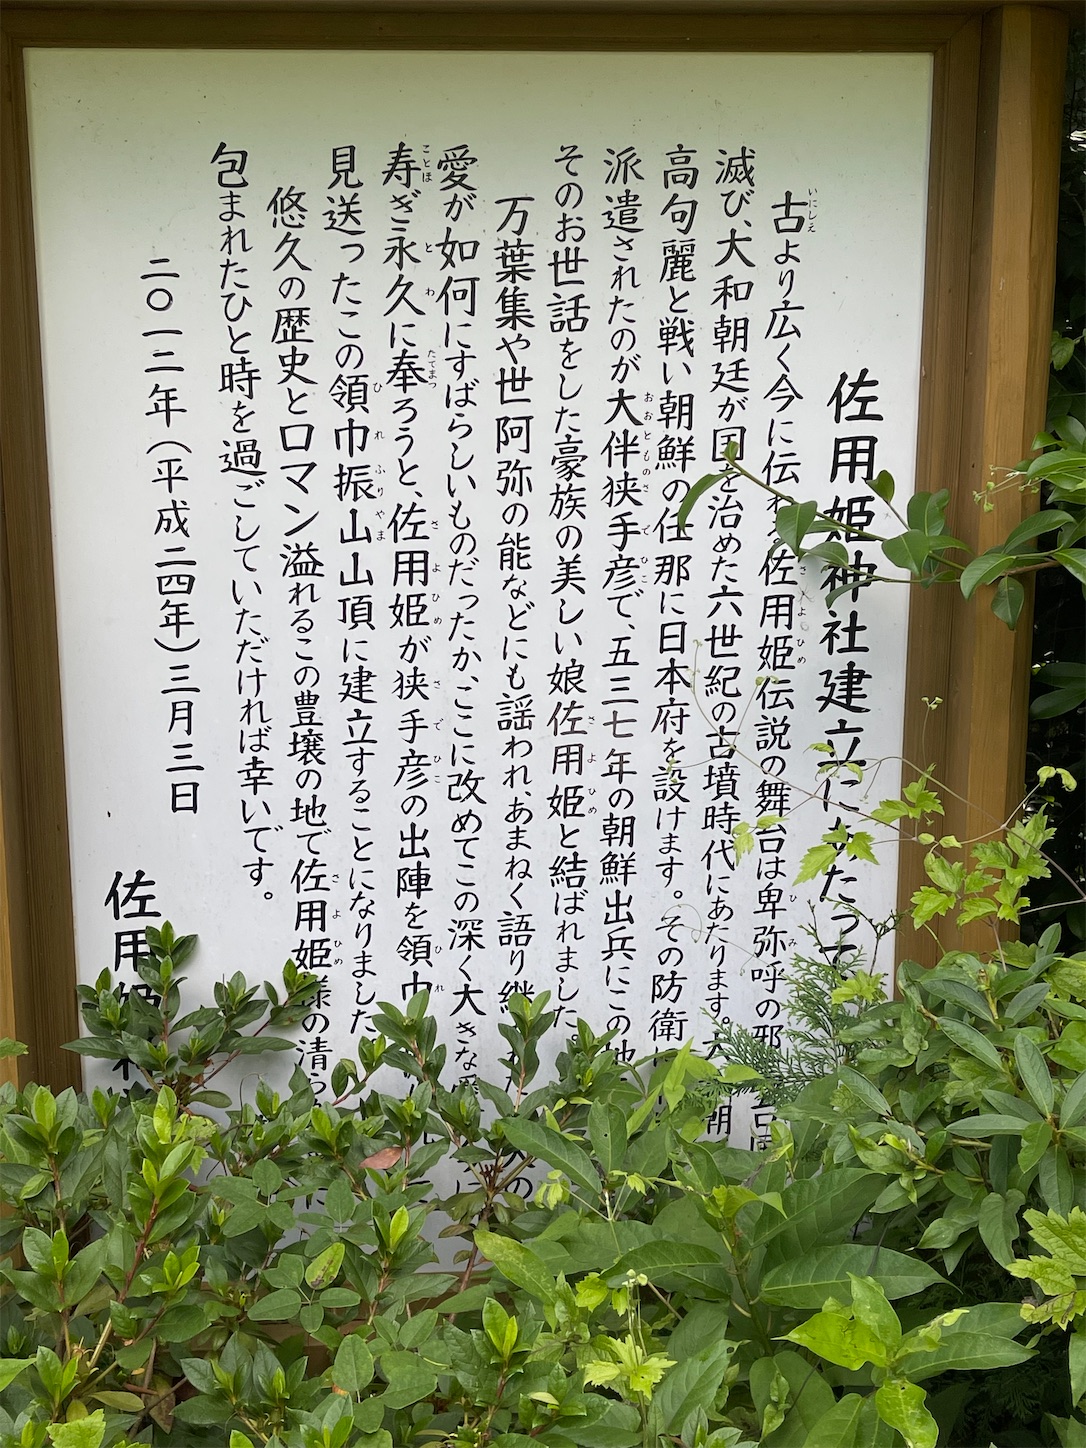 佐用姫神社建立にあたって
古より広く今に伝わる佐用姫伝説の舞台は卑弥呼の邪
滅び、大和朝廷が国を治めた六世紀の古墳時代にあたります。大 朝
高句麗と戦い朝鮮の任那に日本府を設けます。その防衛
派遣されたのが大伴狭手彦で、五三七年の朝鮮出兵にこの地
そのお世話をした豪族の美しい娘佐用姫と結ばれました。
万葉集や世阿弥の能などにも謡われ、あまねく語り継 の
愛が如何にすばらしいものだったか、ここに改めてこの深く大きな愛に
寿ぎ永久に奉ろうと、佐用姫が狭手彦の出陣を領巾
見送ったこの領巾振山山頂に建立することになりました
悠久の歴史とロマン溢れるこの豊壌の地で佐用姫様の清ら に
包まれたひと時を過ごしていただければ幸いです。
二〇一二年(平成二四年)三月三日
佐用姫